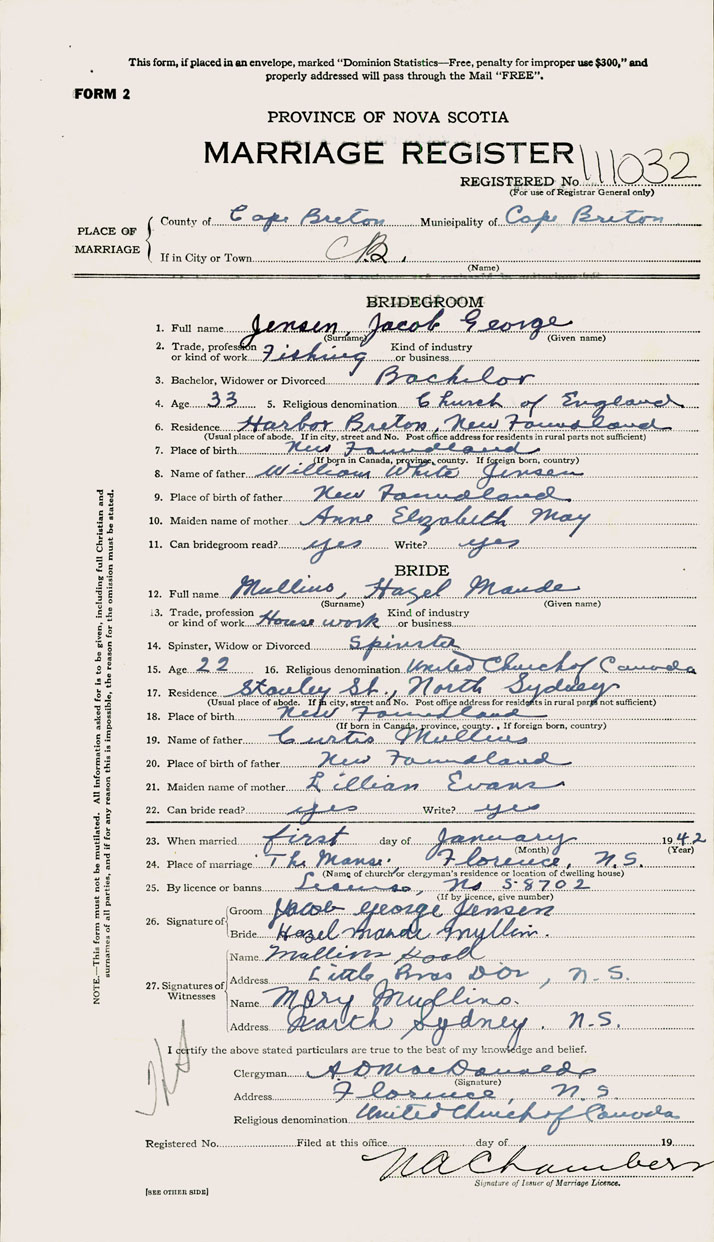 This form, if placed in an envelope, marked “Dominion Statistics—Free, penalty for improper use $300,” and
properly addressed will pass through the Mail “FREE”.
FORM 2
PROVINCE OF NOVA SCOTIA
MARRIAGE REGISTER
111032
REGISTERED No.
(For use of Registrar General only)
PLACE OF MARRIAGE
County of Cape Breton Municipality of Cape Breton
If in City or Town C.B.
(Name)
BRIDEGROOM
1. Full name Jensen, Jacob George
(Surname) (Given name)
2. Trade, profession or kind of work Fishing Kind of industry or business
3. Bachelor, Widower or Divorced Bachelor
4. Age 33 5. Religious denomination Church of England
6. Residence Harbor Breton, New Foundland
(Usual place of abode. If in city, street and No. Post office address for residents in rural parts not sufficient)
7. Place of birth New Foundland
(If born in Canada, province, county. If foreign born, country)
8. Name of father William White Jensen
9. Place of birth of father New Foundland
10. Maiden name of mother Anne Elizabeth May
11. Can bridegroom read? yes Write? yes
BRIDE
12. Full name Mullins, Hazel Maude
(Surname) (Given name)
13. Trade, profession or kind of work House work Kind of industry or business
14. Spinster, Widow or Divorced Spinster
15. Age 22 16. Religious denomination United Church of Canada
17. Residence Stanley St., North Sydney
(Usual place of abode. If in city, street and No. Post office address for residents in rural parts not sufficient)
18. Place of birth New Foundland
(If born in Canada, province, county. If foreign born, country)
19. Name of father Curtis Mullins
20. Place of birth of father New Foundland
21. Maiden name of mother Lillian Evans
22. Can bride read? yes Write? yes
23. When married first day of January 1942
(Month) (Year)
24. Place of marriage 'The Manse', Florence, N.S.
(Name of church or clergyman's residence or location of dwelling house)
25. By licence or banns License, No S-8702
(If by licence, give number)
26. Signature of Groom Jacob George Jensen
Bride Hazel Maude Mullin.
27. Signatures of Witnesses
Name Mullins
Address Little Bras D'Or, N.S.
Name Mary Mullins.
Address North Sydney. N.S.
I certify the above stated particulars are true to the best of my knowledge and belief.
Clergyman A D MacDonald
(Signature)
Address Florence, N.S.
Religious denomination United Church of Canada
Registered No. Filed at this office day of 19
N A Chambers
Signature of Issuer of Marriage Licence.
[SEE OTHER SIDE]
NOTE.—This form must not be mutilated. All information asked for is to be given, including full Christian and
surnames of all parties, and if for any reason this is impossible, the reason for the omission must be stated.